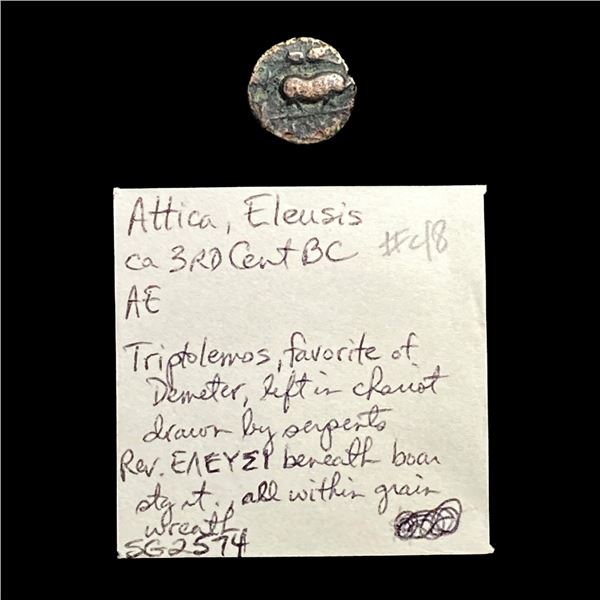 Attica, Eleusis
ca 3RD Cent BC #c48
AE
Triptolemos, favorite of
Demeter, left in chariot
drawn by serpents
Rev. ΕΛΕΥΣΙ beneath boar
stg rt., all within grain
wreath
SG2574